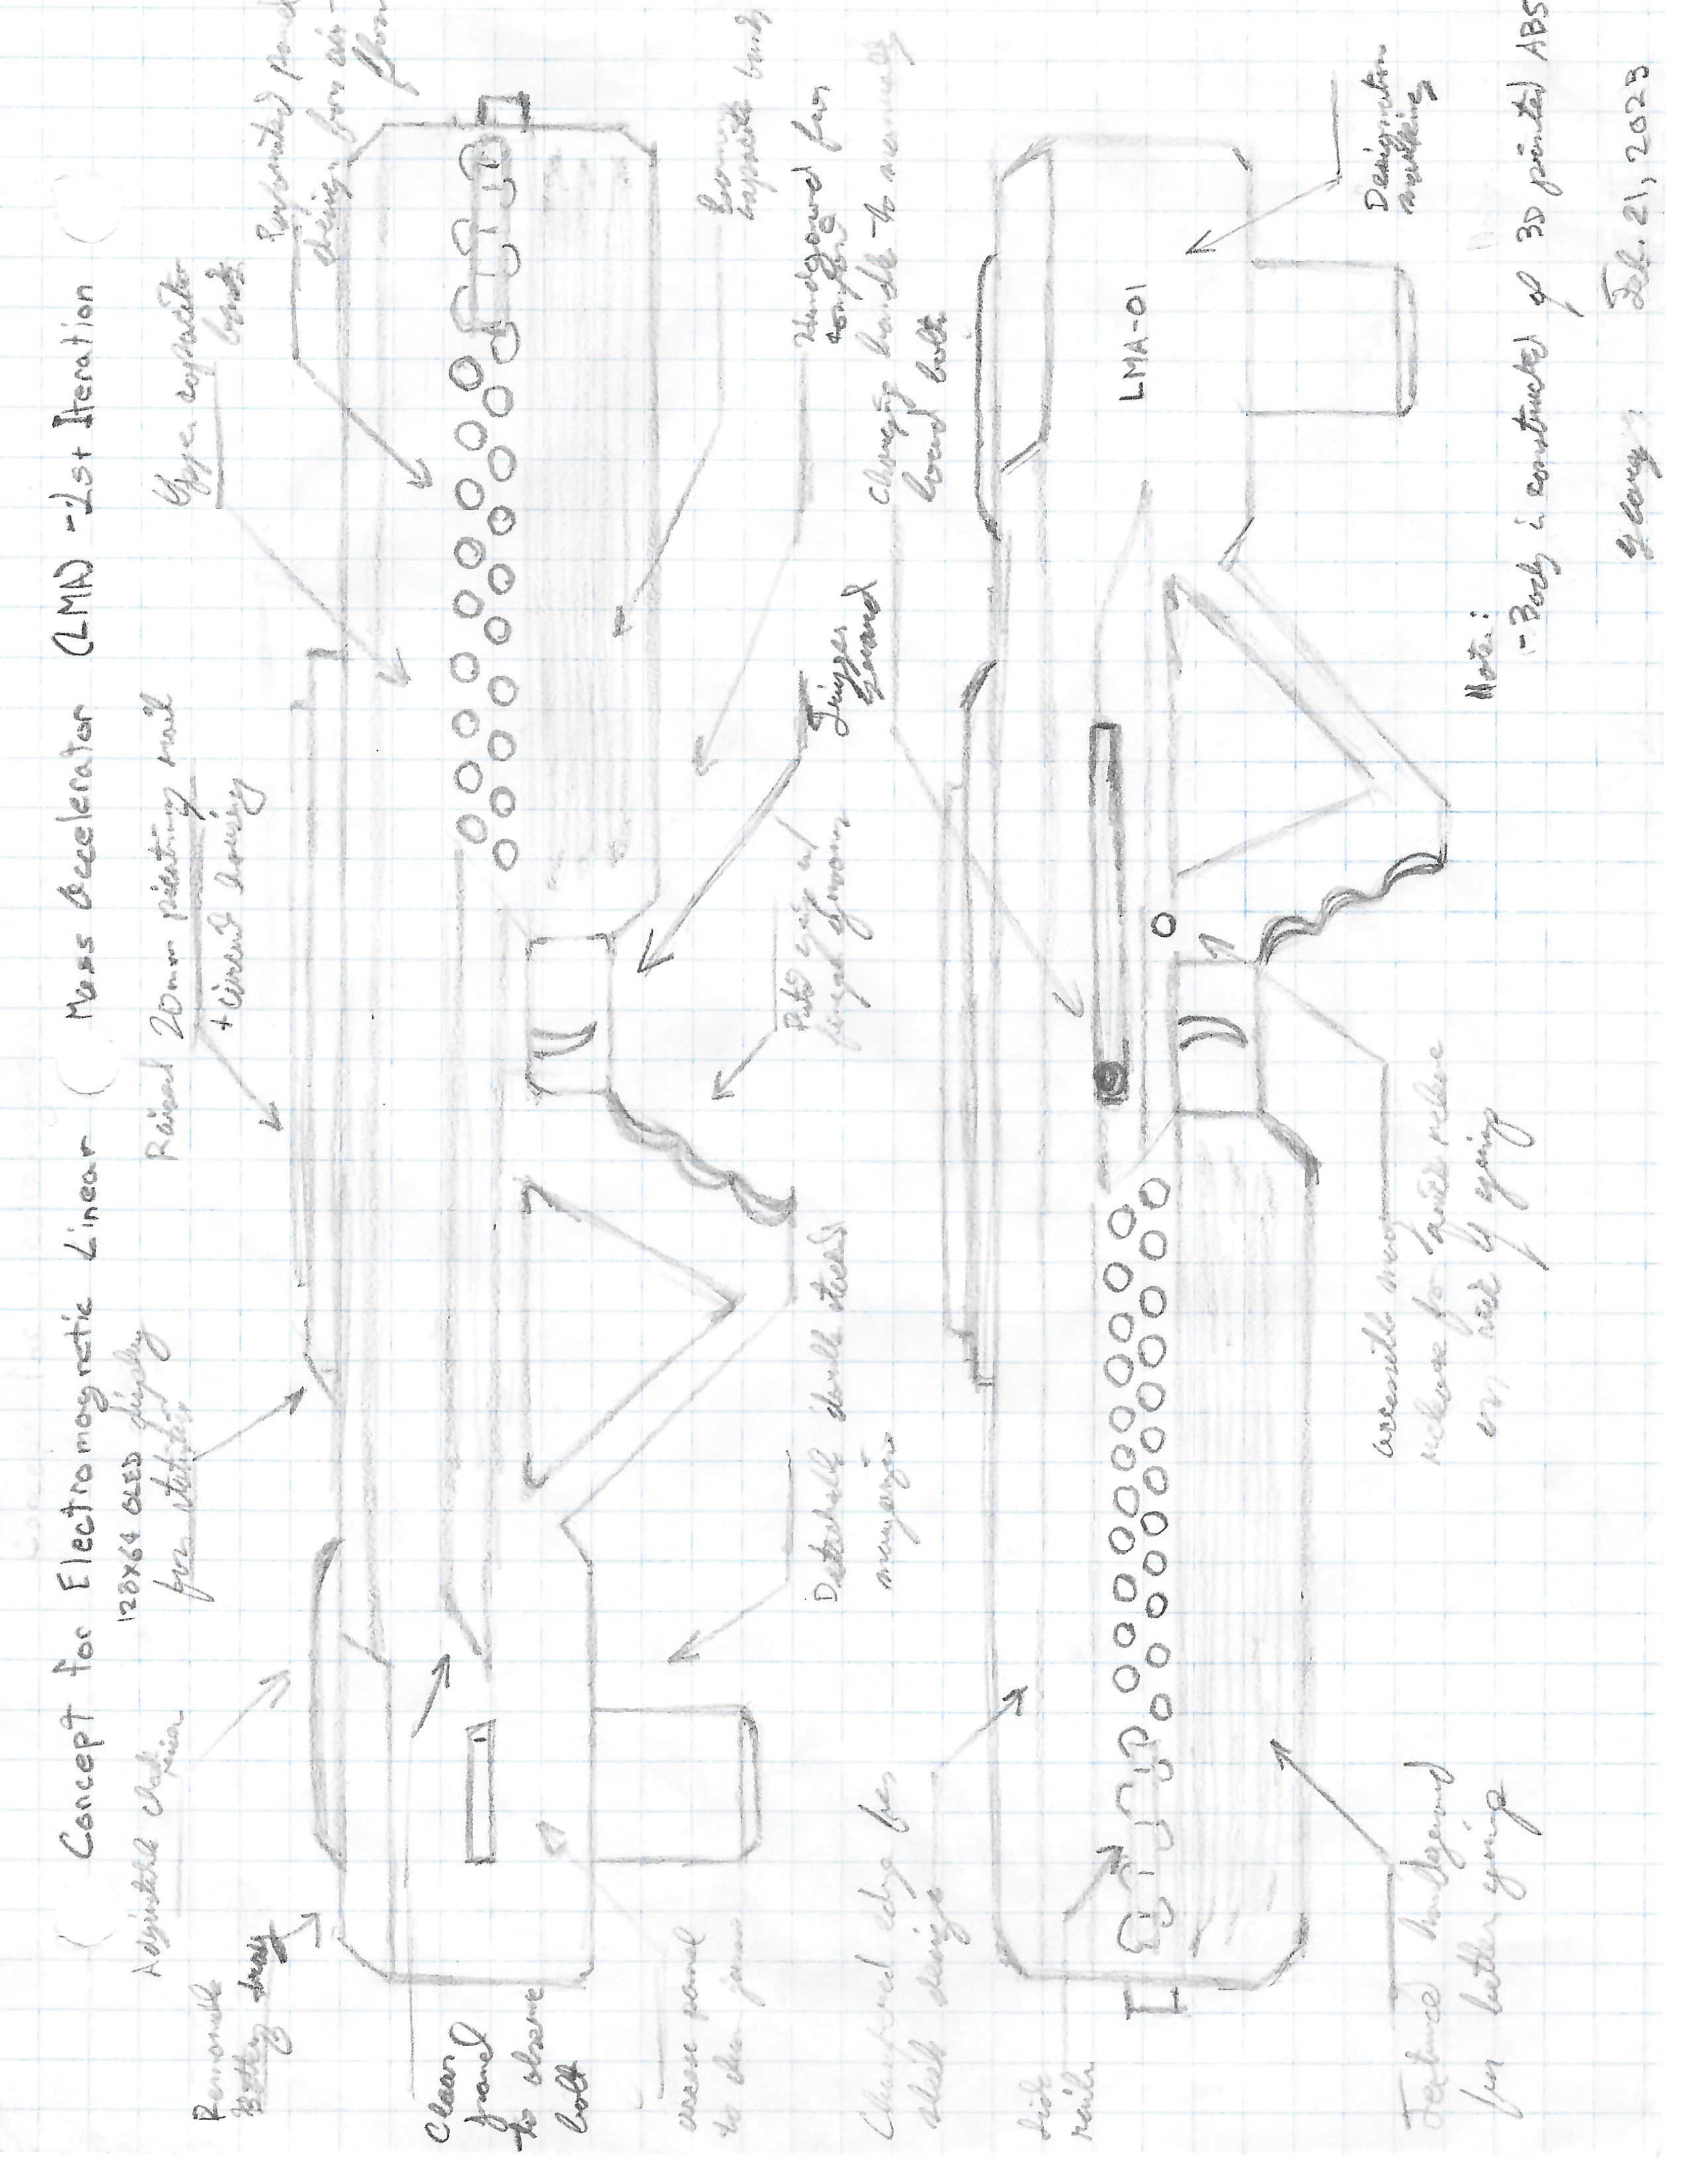 Concept for Electromagnetic Linear Mass Accelerator (LMA) - 1st Iteration
Adjustable cheek
riser
128x64 OLED display
for statistics
Raised 20mm picatinny rail
+ circuit housing
Upper capacitor
bank
Removable
Battery tray
Perforated panel
design for air-
flow
Clear
panel
to observe
bolt
access panel
to clear jams
Detachable double stacked
magazine
Pistol grip w/
finger grooves
Trigger
guard
Lower
capacitor bank
Handguard for
comfort
Chamfered edge for
sleek design
Charging handle to manually
load bolts
Side
rails
LMA-01
Textured handguard
for better grip
accessible mag
release for quick release
on side of grip
Designation
marking
Note:
- Body is constructed of 3D printed ABS
Feb. 21, 2023